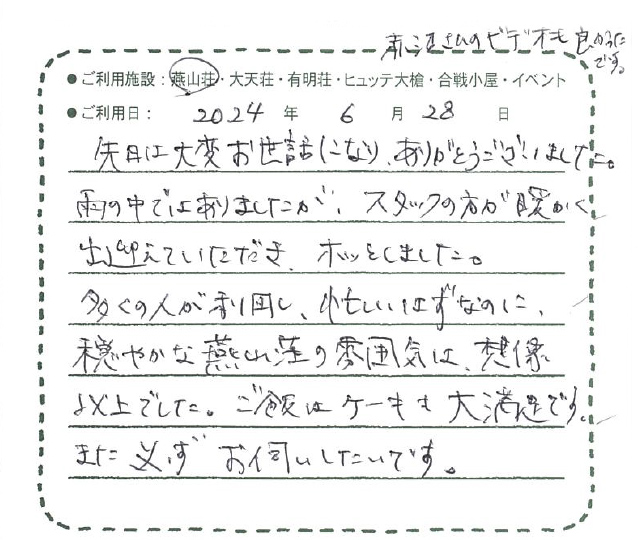 赤沼さんのビデオも良かった
です。
●ご利用施設：燕山荘・大天荘・有明荘・ヒュッテ大槍・合戦小屋・イベント
●ご利用日：2024年 6月 28日
先日は大変お世話になり、ありがとうございました。
雨の中ではありましたが、スタッフの方が暖かく
出迎えていただき、ホッとしました。
多くの人が利用し、忙しいはずなのに、
穏やかな燕山荘の雰囲気は、想像
以上でした。ご飯はケーキも大満足です。
また必ずお伺いしたいです。